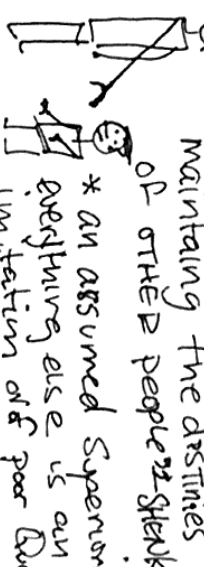 maintaing the destinies
of OTHER people's! SHENK
* an assumed Superior
everything else is an
imitation of Poor Qu